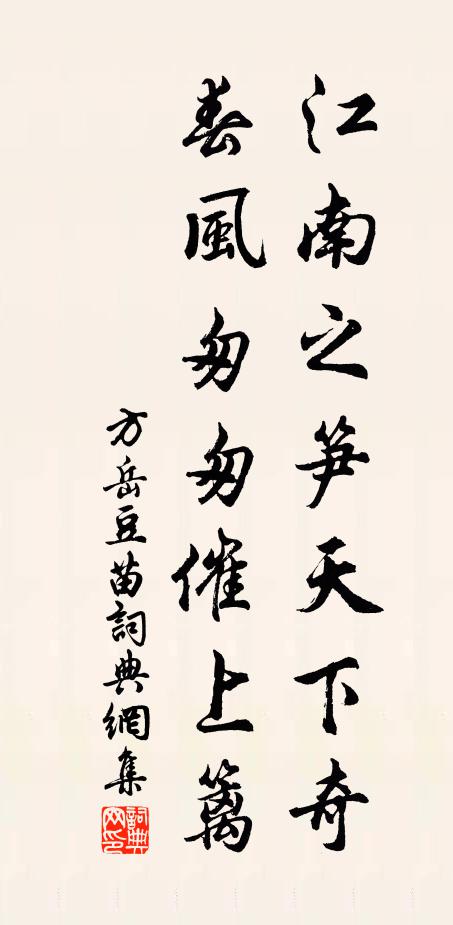 江南之笋天下奇
春風匆匆催上籬
方岳豆苗詞典網集
詞典網印